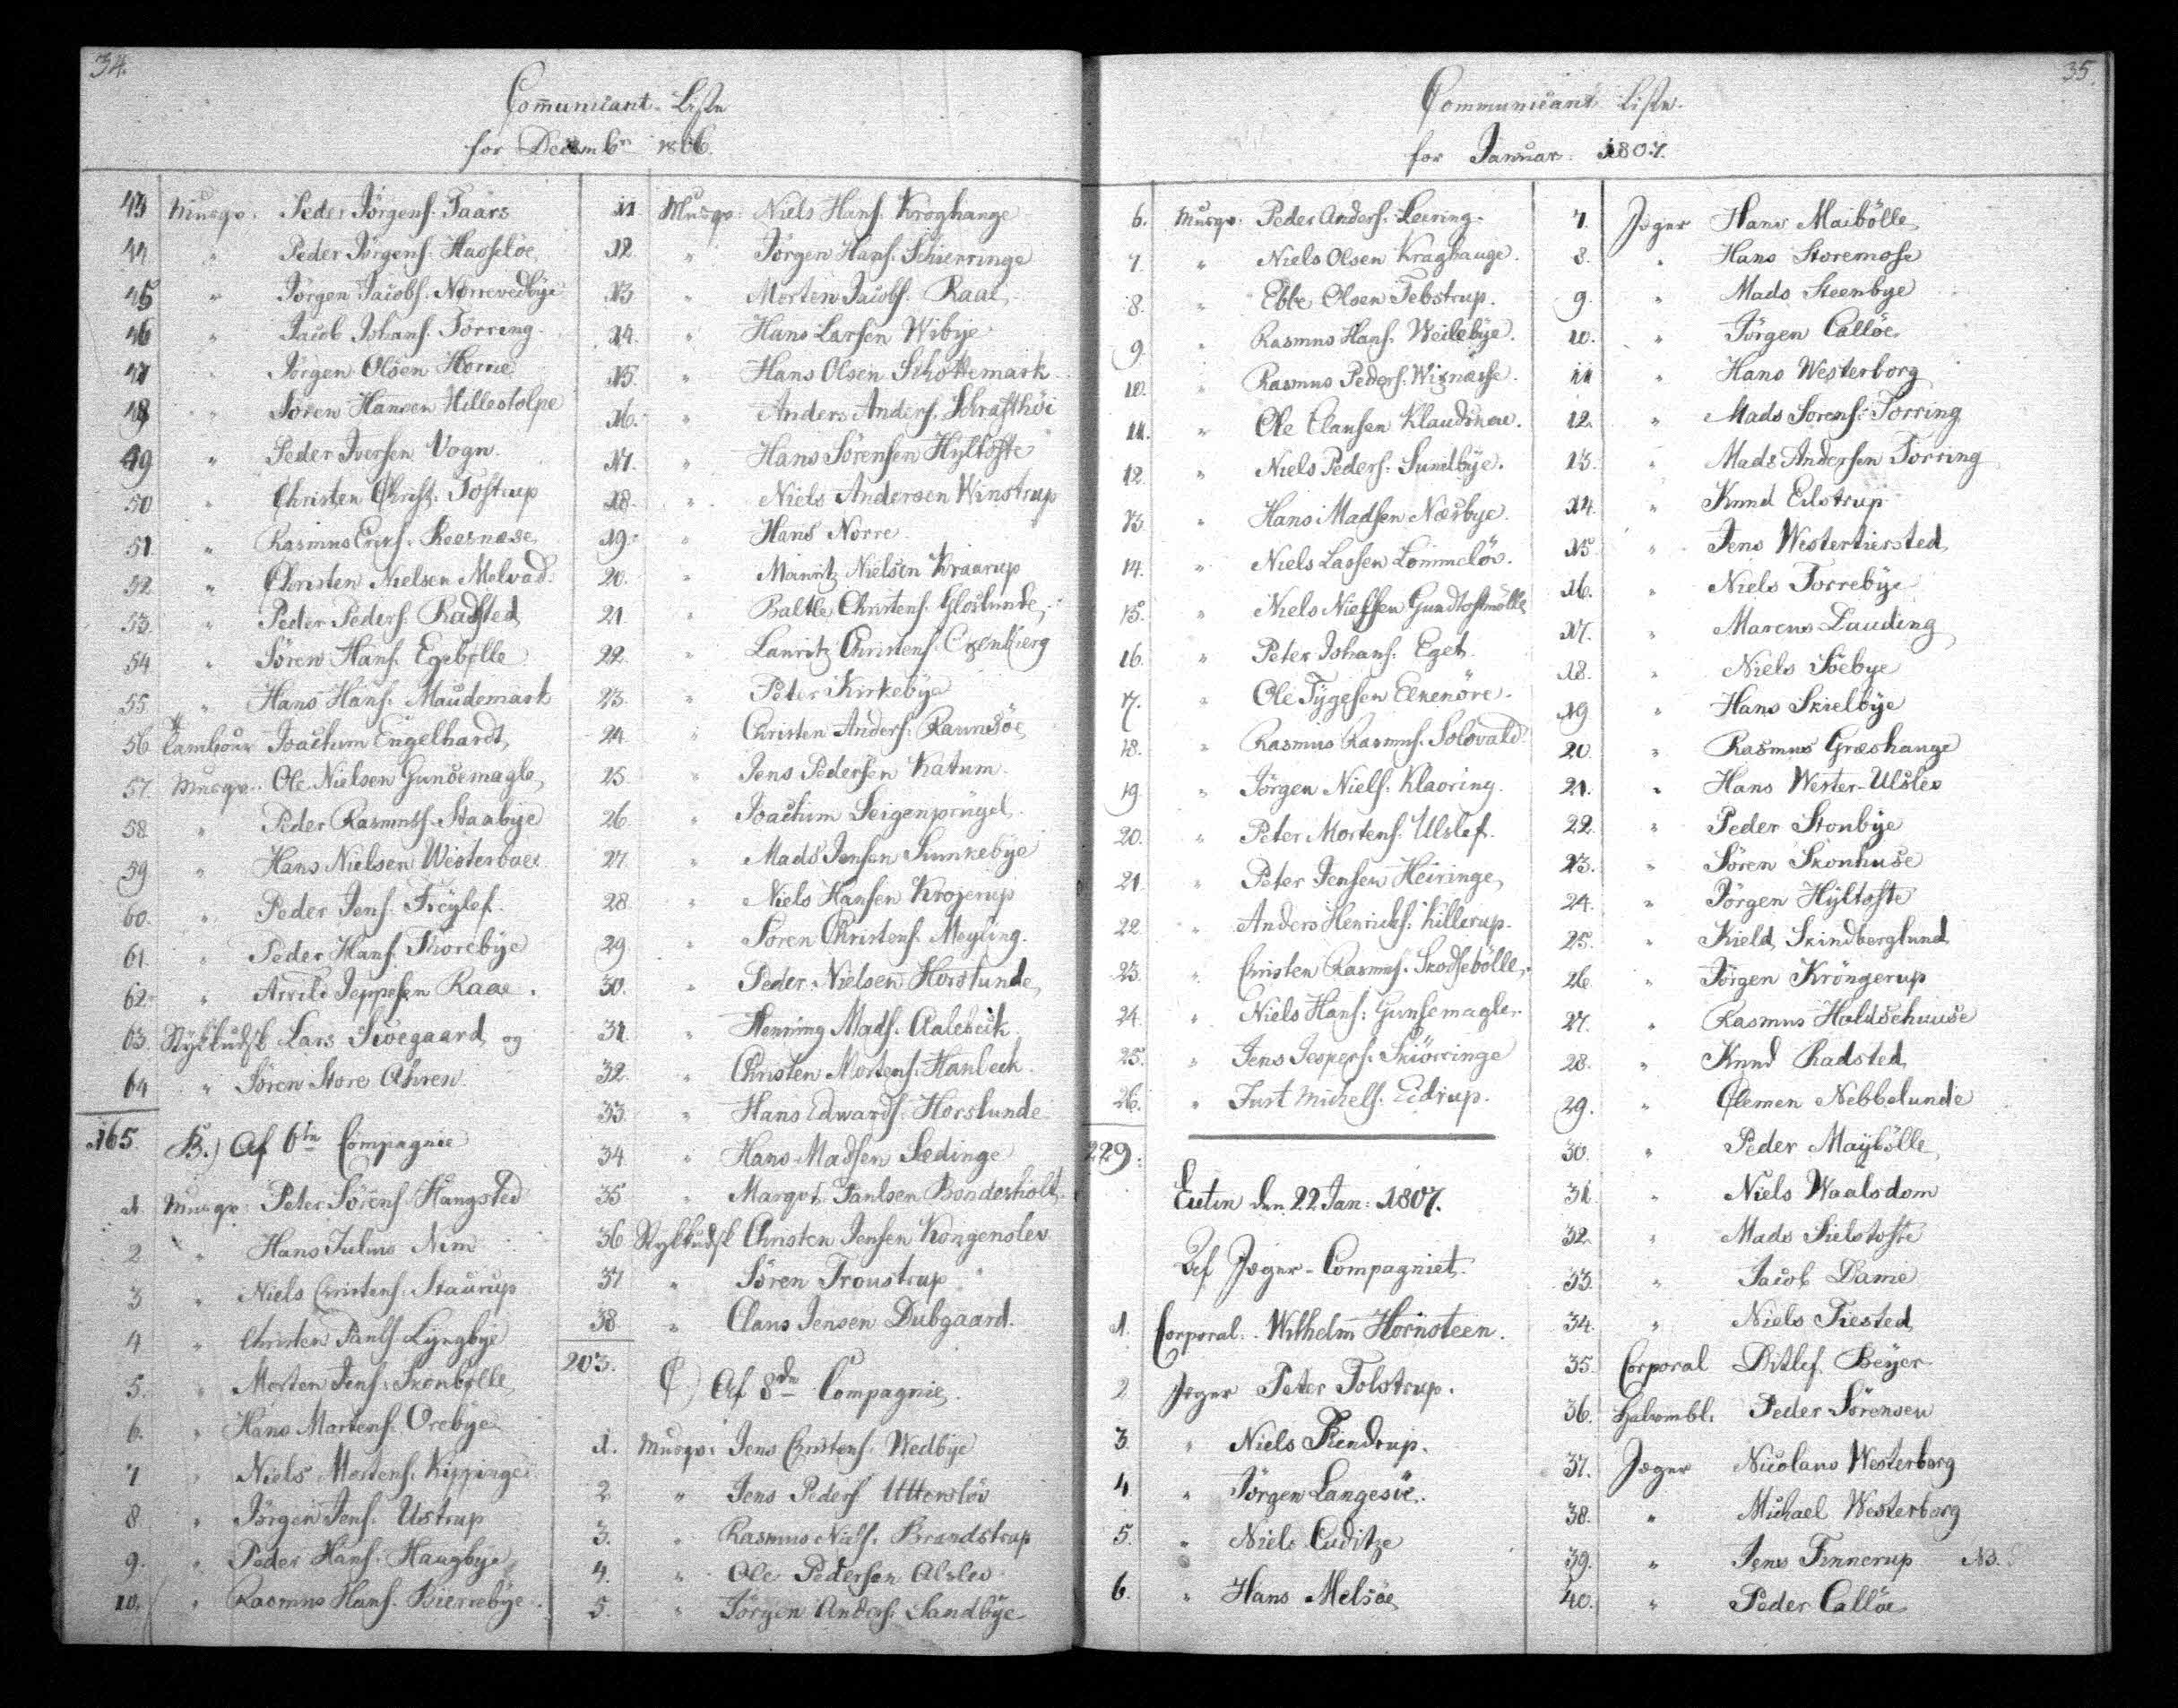 34.
Com̄unicant-Liste
for Decembr 1806.
43 Musqr. Peder Jörgens. Taars
44 " Peder Jörgens. Hasseløe
45 " Jörgen Jacobs. Nørrevedbÿe
46 " Jacob Johans. Torring
47 " Jörgen Olsen Horne
48 " Sören Hansen Hillestolpe
49 " Peder Iversen Vogn.
50 " Christen Christ. Tostrup
51 " Rasmus Eriks. Reersnæse
52 " Christen Nielsen Melvad.
53. " Peder Peders. Radsted
54 " Sören Hans. Egebølle
55. " Hans Hans. Maudemark
56 Tambour Joachum Engelhardt,
57. Musqr. Ole Nielsen Gunsemagle,
58. " Peder Rasmuss. Staabÿe
59 " Hans Nielsen Westerboe
60. " Peder Jens. Freÿlef.
61. " Peder Hans. Thorebÿe
62. " Arvild Jeppesen Raae.
63. Stykkudsk Lars Skovgaard og
64 " Sören Store Ahren.
165. B.) Af 6te Compagnie
1. Musqr: Peter Sörens. Hangsted
2. " Hans Julius Nim
3 " Niels Christens. Staurup
4 " Christen Pauls. Lÿngbÿe
5. " Morten Jens. Skonbølle
6. " Hans Mortens. Orebÿe
7 " Niels Mortens. Kippinge
8. " Jörgen Jens. Ustrup
9. " Peder Hans. Haugbÿe
10. " Rasmus Hans. Bierrebÿe.
11 Musqr: Niels Hans. Kroghange
12 " Jörgen Hans. Schierringe
13 " Morten Jacobs. Raae,
14. " Hans Larsen Wibÿe
15. " Hans Olsen Schottemark
16. " Anders Anders. Schrafthöi
17. " Hans Sörensen Hÿltofte
18. " Niels Andersen Winstrup
19. " Hans Norre.
20. " Mauritz Nielsen Kraarup
21. " Baltle Christens. Gloslunde,
22. " Lauritz Christens. Oxenbierg
23. " Peter Kirkebÿe
24. " Christen Anders. Raunsöe
25. " Jens Pedersen Katum.
26. " Joachum Seigenprügel.
27. " Mads Jensen Sunkebÿe
28. " Niels Hansen Krojerup
29. " Sören Christens. Meÿling.
30. " Peder Nielsen Horslunde,
31. " Henning Mads. Aalebeck
32. " Christen Mortens. Hanbeck.
33. " Hans Edwards. Horslunde
34. " Hans Madsen Sædinge
35. " Margvt. Paulsen Bondesholt,
36 Stykkudsk Christen Jensen Kongenslev
37 " Sören Troustrup
38. " Claus Jensen Dubgaard.
203. C.) Af 8de Compagnie.
1. Musqr: Jens Christens. Wedbÿe
2. " Jens Peders. Utterslöv
3. " Rasmus Niels. Brandstrup
4. " Ole Pedersen Alslev
5. " Jörgen Anders. Sandbÿe
35.
Communicant Liste.
for Januar. 1807.
6. Musqr. Peder Anders. Leering.
7. " Niels Olsen Kraghauge.
8. " Ebbe Olsen Tebstrup.
9. " Rasmus Hans. Weilebÿe.
10. " Rasmus Peders. Wignæsse.
11. " Ole Clausen Klaudskoe.
12. " Niels Peders: Sundbÿe.
13. " Hans Madsen Næsbye.
14. " Niels Lassen Lommelöv.
15. " Niels Nielsen Gundtoftmölle
16. " Peter Johans. Eget.
17. " Ole Tÿgesen Elkenöre.
18. " Rasmus Rasmus. Solovald.
19. " Jörgen Niels. Klaoring.
20. " Peter Mortens. Ulslef.
21. " Peter Jensen Heiringe,
22. " Anders Henrichs: Killerup.
23. " Christen Rasmus. Skodsebölle,
24. " Niels Hans: Gunsemagle.
25. " Jens Jespers. Skiörringe
26. " Just Michels. Eidrup.
229.
Eutin den 22 Jan: 1807.
Af Jæger-Compagniet.
1. Corporal. Wilhelm Hornsteen.
2 Jæger Peter Tolstrup.
3. " Niels Rendrup.
4. " Jörgen Langesöe.
5. " Niels Cuditze
6. " Hans Melsöe,
7. Jæger Hans Maibölle,
8. " Hans Storemose
9. " Mads Steenbye
10. " Jörgen Callöe,
11 " Hans Westerborg
12. " Mads Sorens. Torring
13. " Mads Andersen Torring
14. " Knud Eilstrup
15. " Jens Westertiersted,
16. " Niels Torrebÿe
17. " Marcus Lauding
18. " Niels Söebye
19 " Hans Skielbÿe
20. " Rasmus Græshange
21. " Hans Wester-Ulslev
22. " Peder Stonbÿe
23. " Sören Skonhuse
24. " Jörgen Hÿltofte
25. " Kield Skindberglund
26. " Jörgen Kröngerup
27. " Rasmus Holdschuuse
28. " Knud Radsted,
29. " Clemen Nebbelunde
30. " Peder Maÿbölle,
31. " Niels Waalsdom
32. " Mads Sielstofte
33. " Jacob Dame
34. " Niels Tiested
35. Corporal Ditlef Beÿer.
36. Halvmbl. Peder Sörensen
37. Jæger Nicolaus Westerborg
38. " Michael Westerborg
39. " Jens Finnerup NB.
40. " Peder Callöe